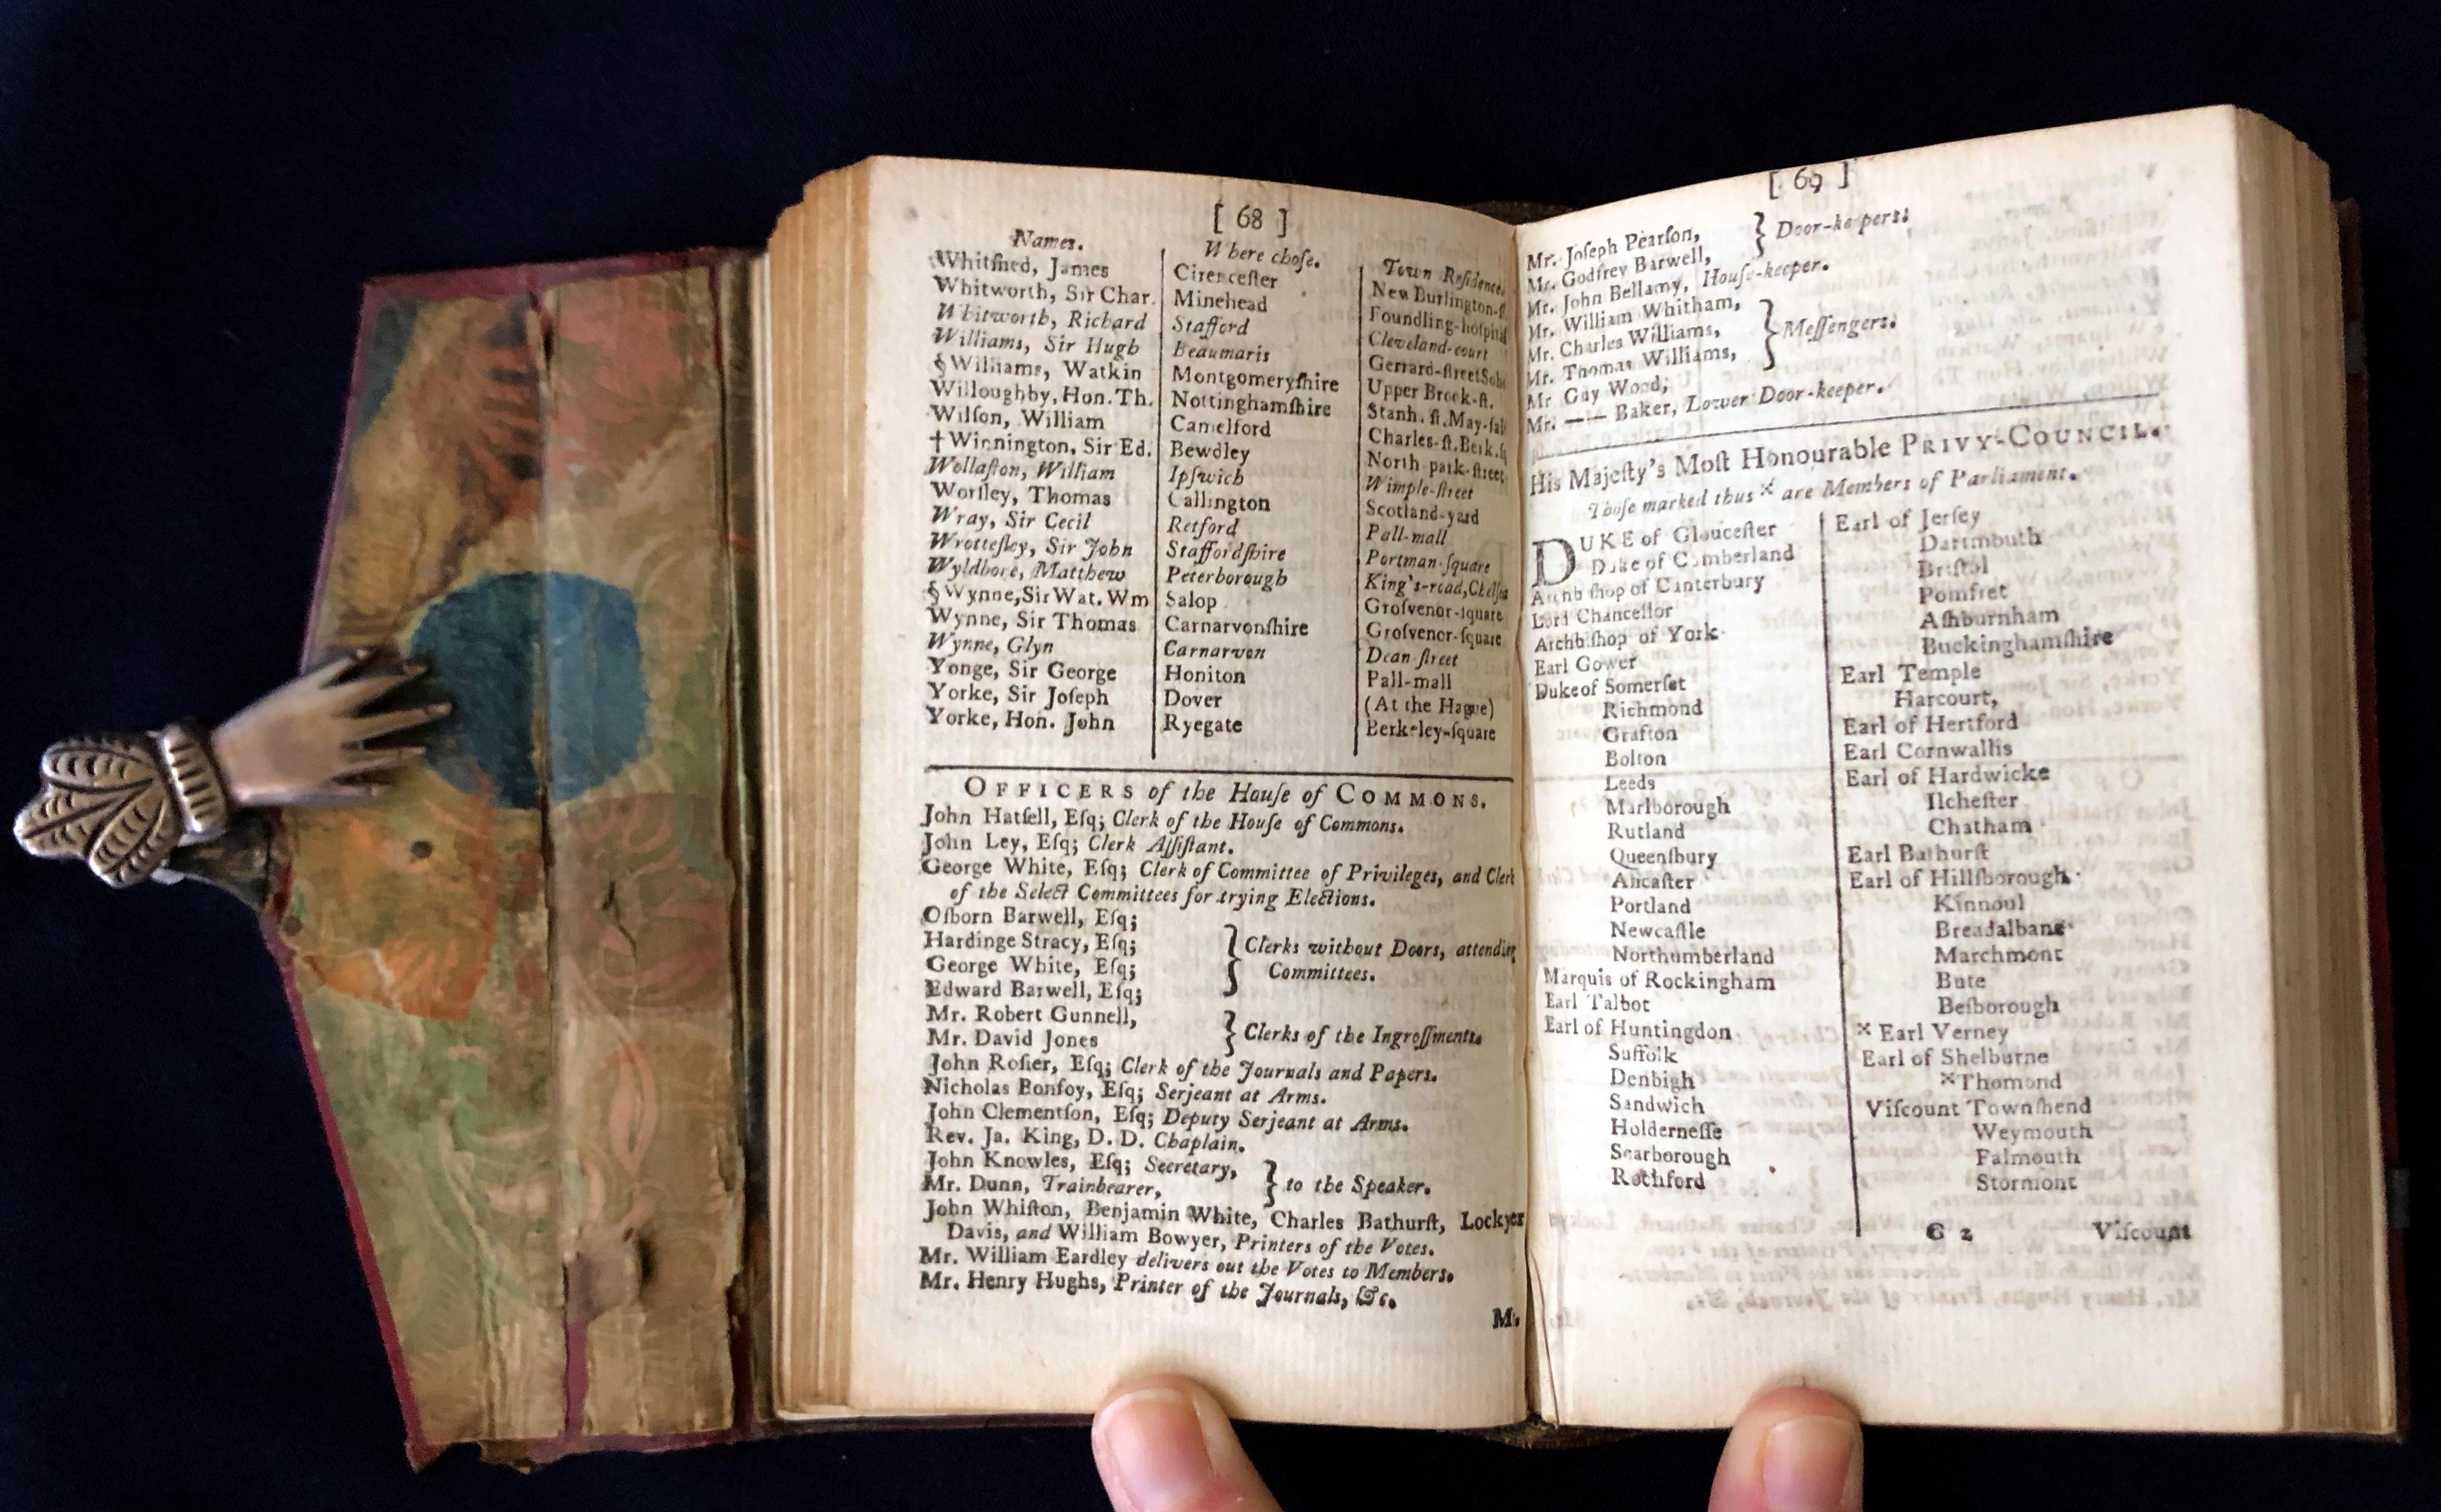 [ 68 ]
Names. | Where chose. | Town Residence.
Whitſhed, James | Cirenceſter | New Burlington-ſt
Whitworth, Sir Char. | Minehead | Foundling-hoſpital
Whitworth, Richard | Stafford | Cleveland-court
Williams, Sir Hugh | Beaumaris | Gerrard-ſtreet Soho
§Williams, Watkin | Montgomeryſhire | Upper Brook-ſt.
Willoughby, Hon. Th. | Nottinghamſhire | Stanh. ſt. May-fair
Wilſon, William | Camelford | Charles-ſt. Berk.ſq
†Winnington, Sir Ed. | Bewdley | North park-ſtreet
Wollaſton, William | Ipſwich | Wimple-ſtreet
Worſley, Thomas | Callington | Scotland-yard
Wray, Sir Cecil | Retford | Pall-mall
Wrotteſley, Sir John | Staffordſhire | Portman-ſquare
Wyldbore, Matthew | Peterborough | King's-road, Chelſea
§Wynne, Sir Wat. Wm | Salop | Groſvenor-ſquare
Wynne, Sir Thomas | Carnarvonſhire | Groſvenor-ſquare
Wynne, Glyn | Carnarvon | Dean-ſtreet
Yonge, Sir George | Honiton | Pall-mall
Yorke, Sir Joſeph | Dover | (At the Hague)
Yorke, Hon. John | Ryegate | Berkeley-ſquare
OFFICERS of the Houſe of COMMONS.
John Hatſell, Eſq; Clerk of the Houſe of Commons.
John Ley, Eſq; Clerk Aſſiſtant.
George White, Eſq; Clerk of Committee of Privileges, and Clerk
of the Select Committees for trying Elections.
Oſborn Barwell, Eſq;
Hardinge Stracy, Eſq;
George White, Eſq;
Edward Barwell, Eſq;
} Clerks without Doors, attending
Committees.
Mr. Robert Gunnell,
Mr. David Jones
} Clerks of the Ingroſſments.
John Roſier, Eſq; Clerk of the Journals and Papers.
Nicholas Bonfoy, Eſq; Serjeant at Arms.
John Clementſon, Eſq; Deputy Serjeant at Arms.
Rev. Ja. King, D. D. Chaplain.
John Knowles, Eſq; Secretary,
Mr. Dunn, Trainbearer,
} to the Speaker.
John Whiſton, Benjamin White, Charles Bathurſt, Lockyer
Davis, and William Bowyer, Printers of the Votes.
Mr. William Eardley delivers out the Votes to Members.
Mr. Henry Hughs, Printer of the Journals, &c.
Mr.
[ 69 ]
Mr. Joſeph Pearſon,
Mr. Godfrey Barwell,
} Door-keepers.
Mr. John Bellamy, Houſe-keeper.
Mr. William Whitham,
Mr. Charles Williams,
Mr. Thomas Williams,
Mr. Guy Wood,
} Meſſengers.
Mr. —— Baker, Lower Door-keeper.
His Majeſty's Moſt Honourable PRIVY-COUNCIL.
Thoſe marked thus × are Members of Parliament.
DUKE of Glouceſter
Duke of Cumberland
Archbiſhop of Canterbury
Lord Chancellor
Archbiſhop of York
Earl Gower
Duke of Somerſet
Richmond
Grafton
Bolton
Leeds
Marlborough
Rutland
Queenſbury
Ancaſter
Portland
Newcaſtle
Northumberland
Marquis of Rockingham
Earl Talbot
Earl of Huntingdon
Suffolk
Denbigh
Sandwich
Holderneſſe
Scarborough
Rochford
Earl of Jerſey
Dartmouth
Briſtol
Pomfret
Aſhburnham
Buckinghamſhire
Earl Temple
Harcourt,
Earl of Hertford
Earl Cornwallis
Earl of Hardwicke
Ilcheſter
Chatham
Earl Bathurſt
Earl of Hillſborough
Kinnoul
Breadalbane
Marchmont
Bute
Beſborough
× Earl Verney
Earl of Shelburne
×Thomond
Viſcount Townſhend
Weymouth
Falmouth
Stormont
G 2
Viſcount